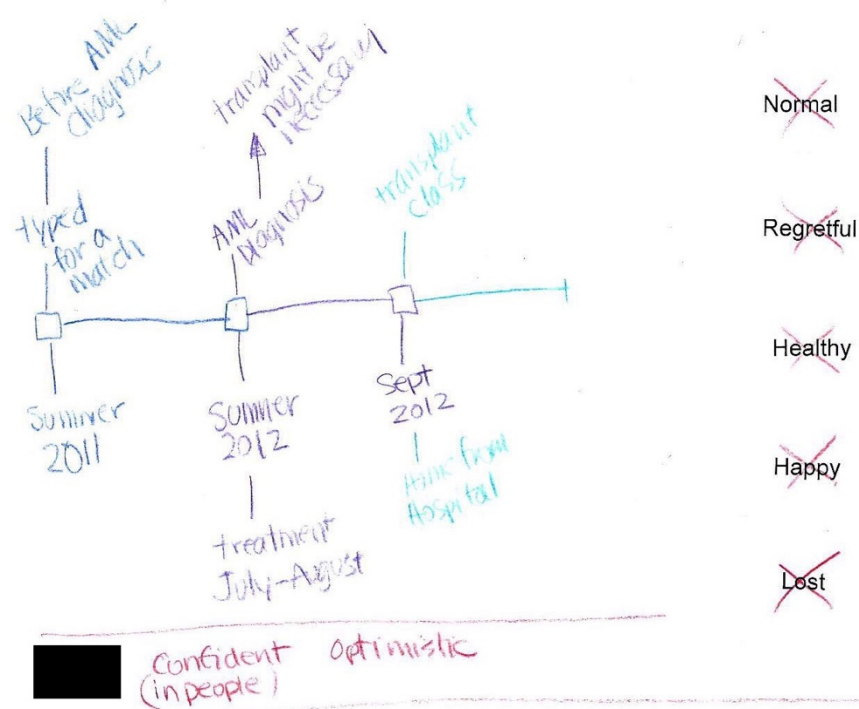 Before AML
diagnosis
typed
for a
match
Summer
2011
transplant
might be
necessary
AML
Diagnosis
Summer
2012
treatment
July-August
transplant
class
Sept
2012
Home from
Hospital
Normal
Regretful
Healthy
Happy
Lost
Confident Optimistic
(in people)